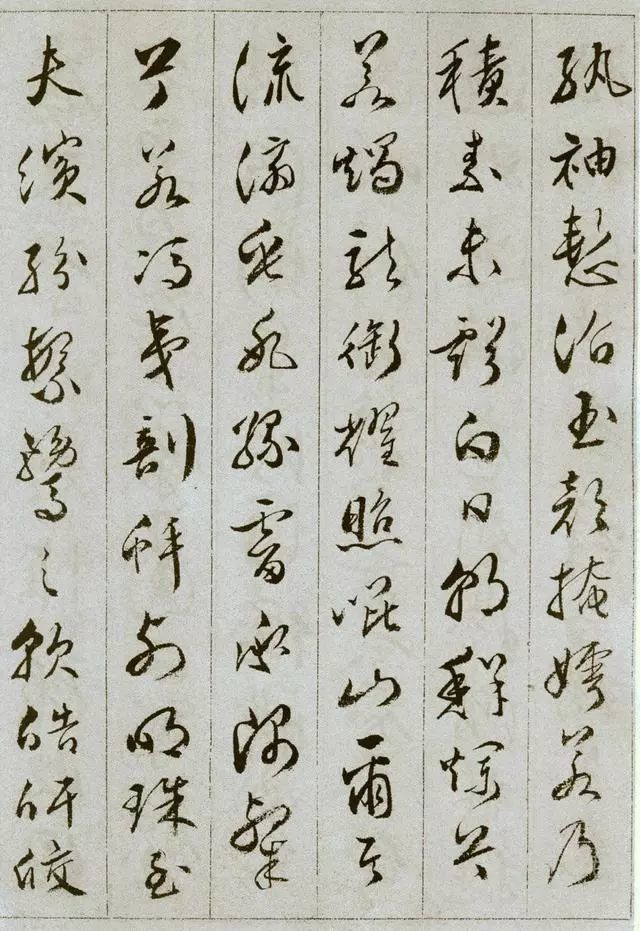 紈袖慙冶玉顏掩姱若乃
積素未虧白日朝鮮爛兮
若燭龍銜耀照崐山爾其
流滴垂冰緣霤承隅粲
兮若馮夷剖蚌列明珠至
夫繽紛繁騖之貌皓皔皎